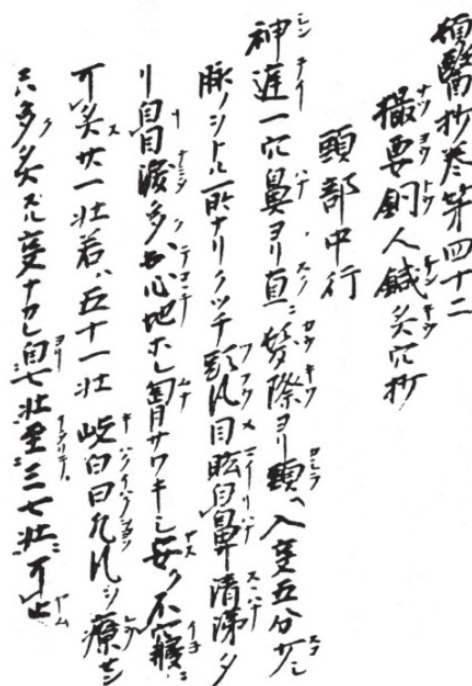 頓醫抄卷第四十二
撮要銅人鍼灸穴抄
頭部中行
神庭一穴鼻ヨリ直ニ髪際ヨリ頭ヘ入事五分サシ
脉ノシトル所ナリウツチ頭風目眩自鼻清涕タ
リ目涙多ク出心地ホレ胷サワキシ安ク不寢ニ
可灸廿一壮若ハ五十一壮 岐白曰凡風シ療セン
只多灸スル事ナカレ自七壮至三七壮ニ可止